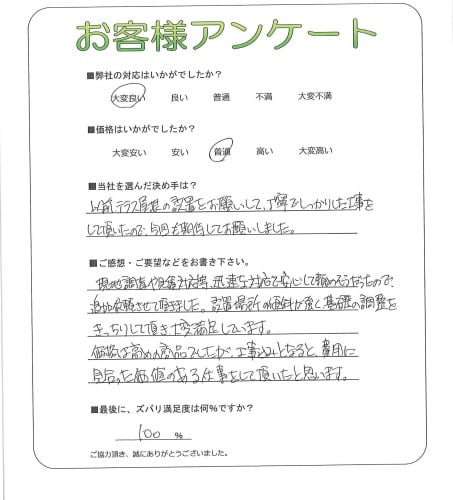 お客様アンケート
■弊社の対応はいかがでしたか？
大変良い 良い 普通 不満 大変不満
■価格はいかがでしたか？
大変安い 安い 普通 高い 大変高い
■当社を選んだ決め手は？
以前テラス屋根の設置をお願いして、丁寧でしっかりした工事を
して頂いたので、今回も期待してお願いしました。
■ご感想・ご要望などをお書き下さい。
現地調査や見積対応等、迅速な対応で安心して頼めそうだったので、
追加依頼させて頂きました。設置場所の傾斜が強く基礎の調整を
きっちりして頂き大変満足しています。
価格は高めの商品でしたが、工事込みとなると、費用に
見合った価値のある仕事をして頂いたと思います。
■最後に、ズバリ満足度は何%ですか？
100 %
ご協力頂き、誠にありがとうございました。